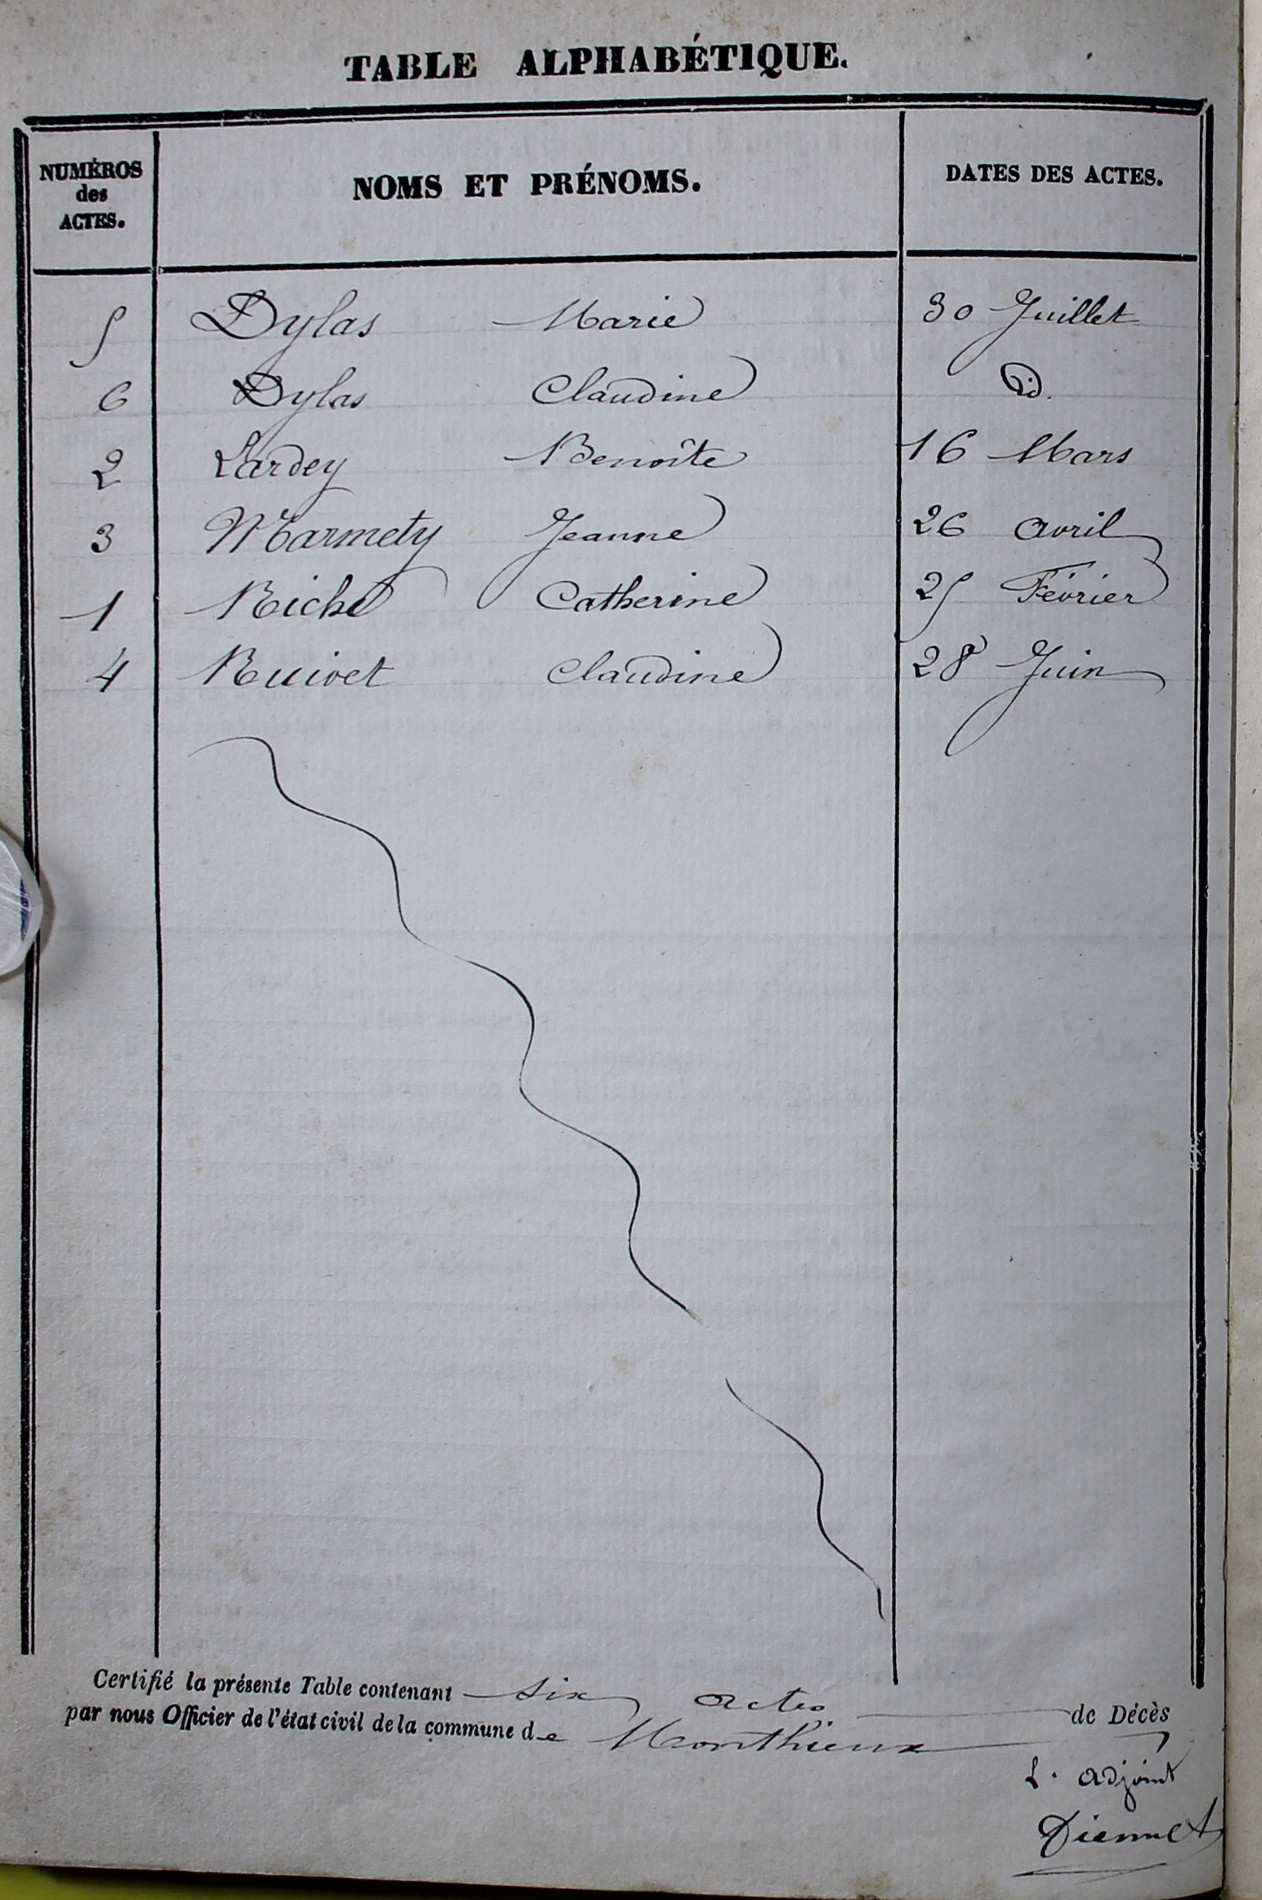 TABLE ALPHABÉTIQUE.
NUMÉROS des ACTES. NOMS ET PRÉNOMS. DATES DES ACTES.
5 Dylas Marie 30 Juillet
6 Dylas Claudine id.
2 Lardey Benoîte 16 Mars
3 Marmety Jeanne 26 avril
1 Riche Catherine 25 Février
4 Ruivet Claudine 28 Juin
Certifié la présente Table contenant six actes de Décès
par nous Officier de l'état civil de la commune de Monthieux
L. adjoint